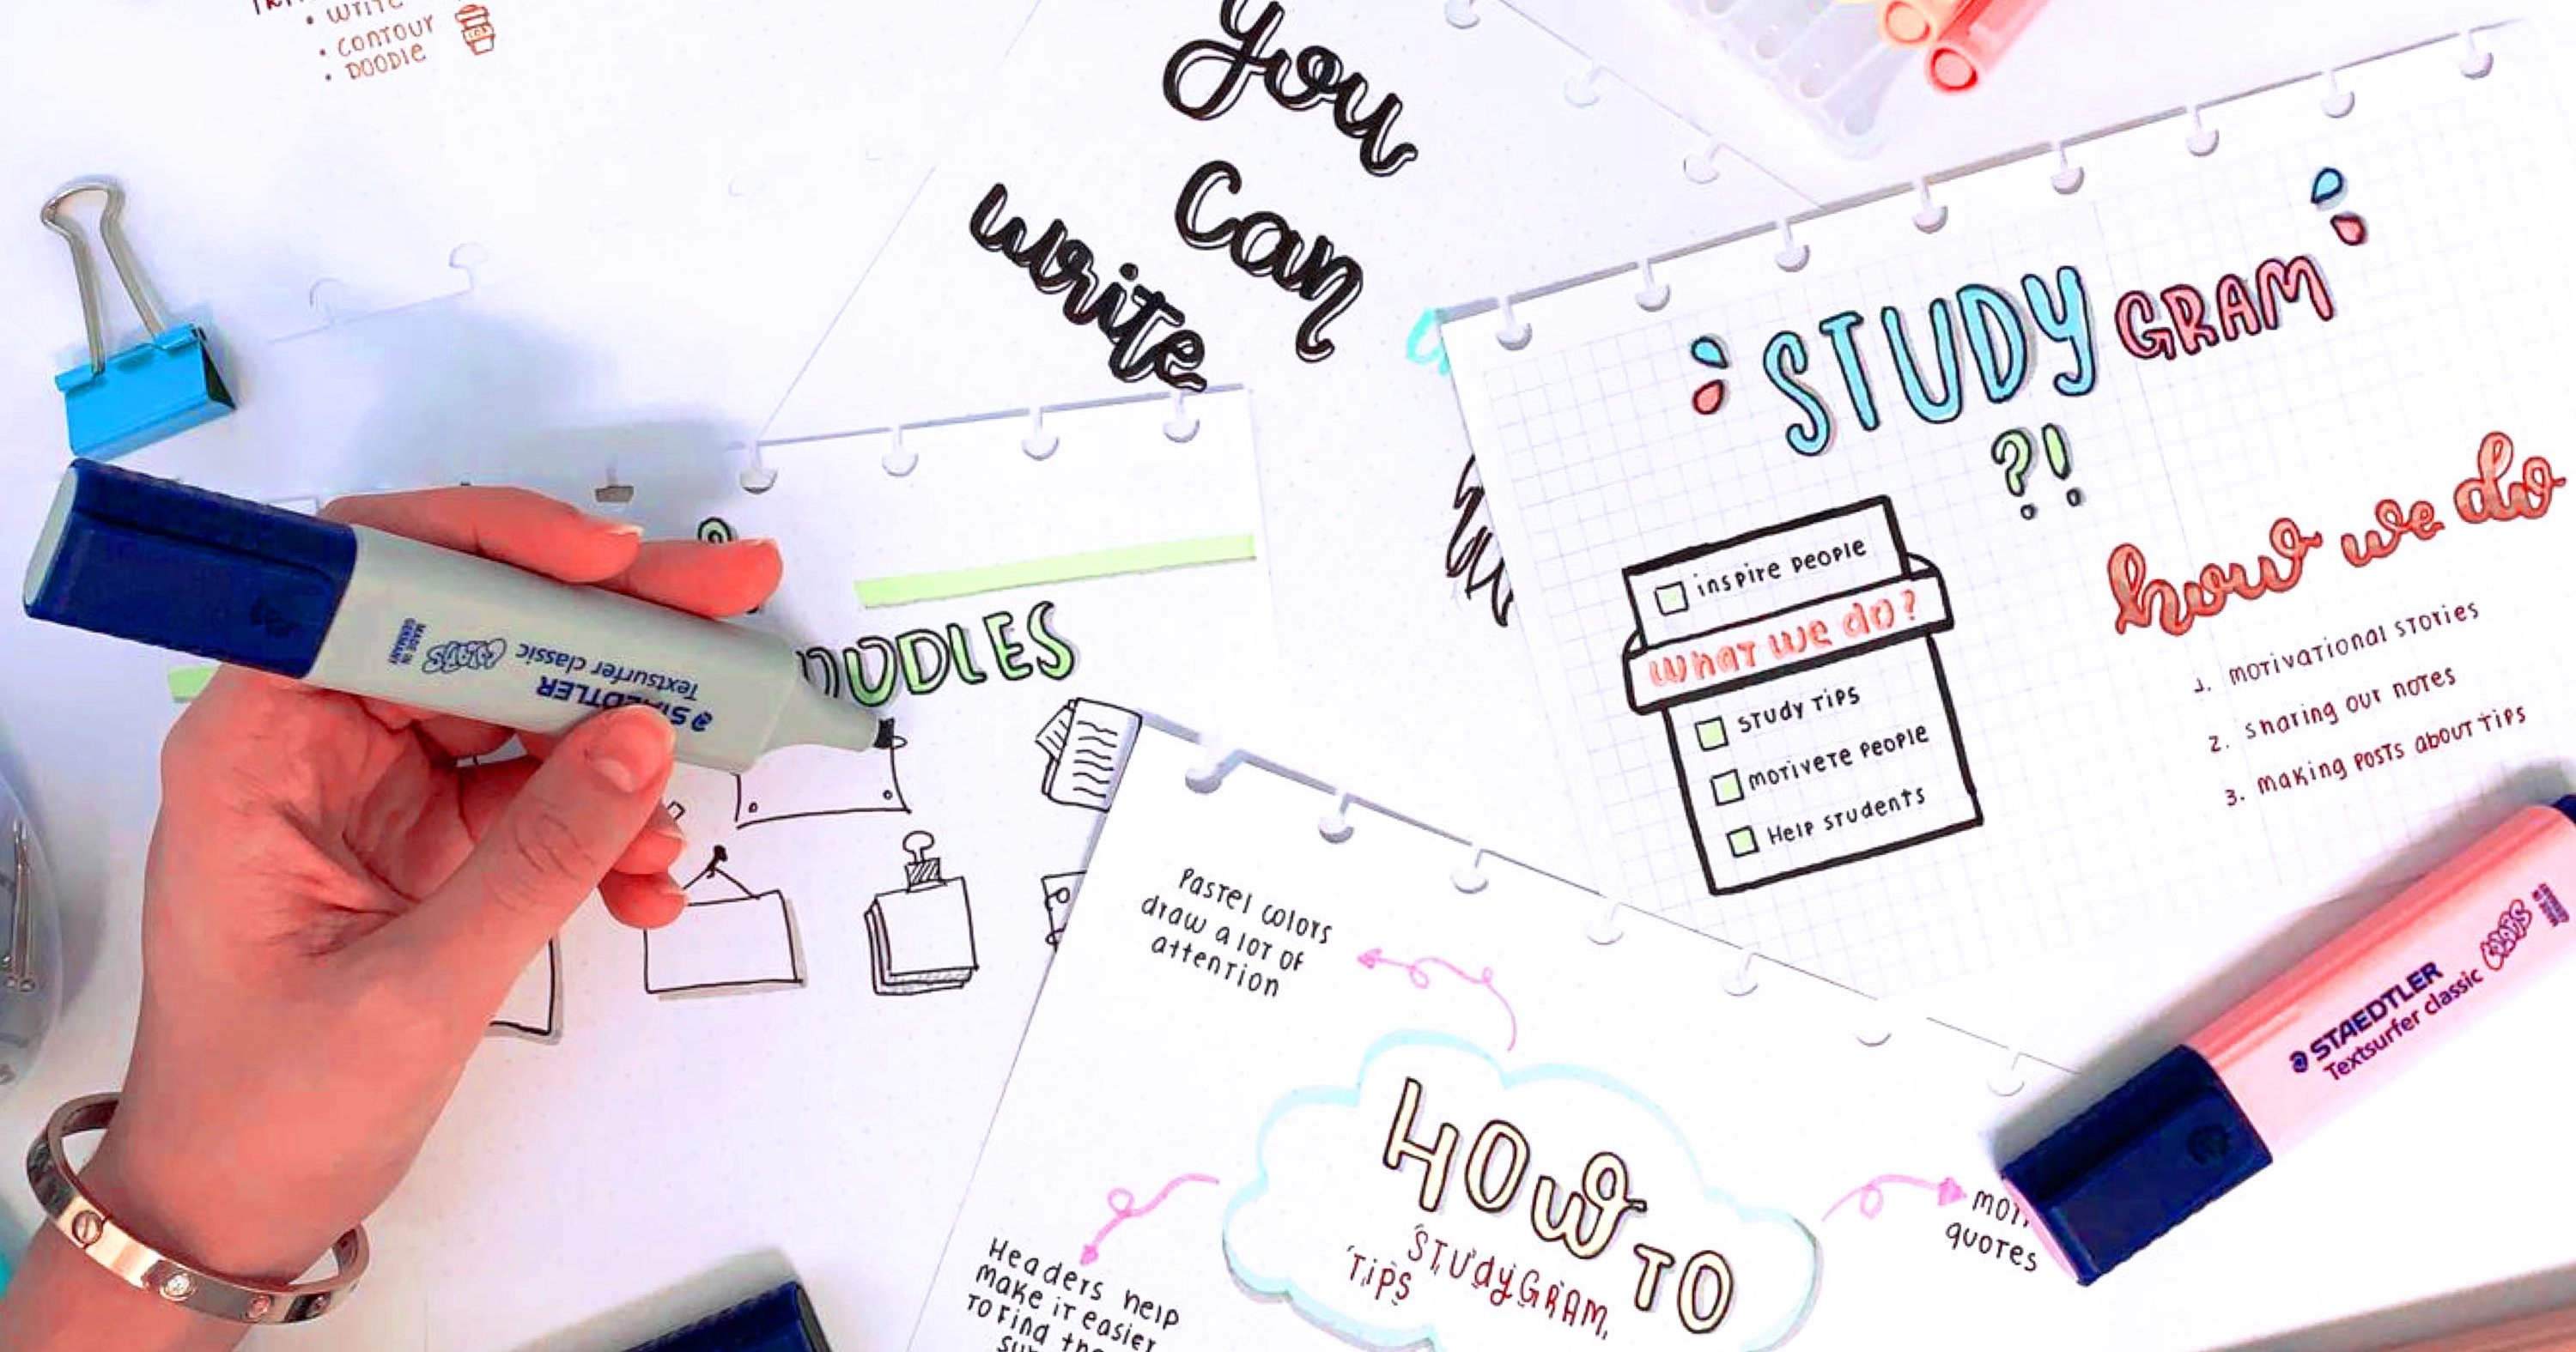 • WRITE
• CONTOUR
• DOODLE
you
can
write
STUDY GRAM
?!
inspire people
What we do?
study tips
motivete people
Help students
how we do
1. motivational stories
2. sharing our notes
3. making posts about tips
MADE IN
GERMANY
Textsurfer classic
STAEDTLER
DOODLES
Pastel colors
draw a lot of
attention
HOW TO
STUDYGRAM
TIPS
Headers help
make it easier
to find the
quotes
STAEDTLER
Textsurfer classic